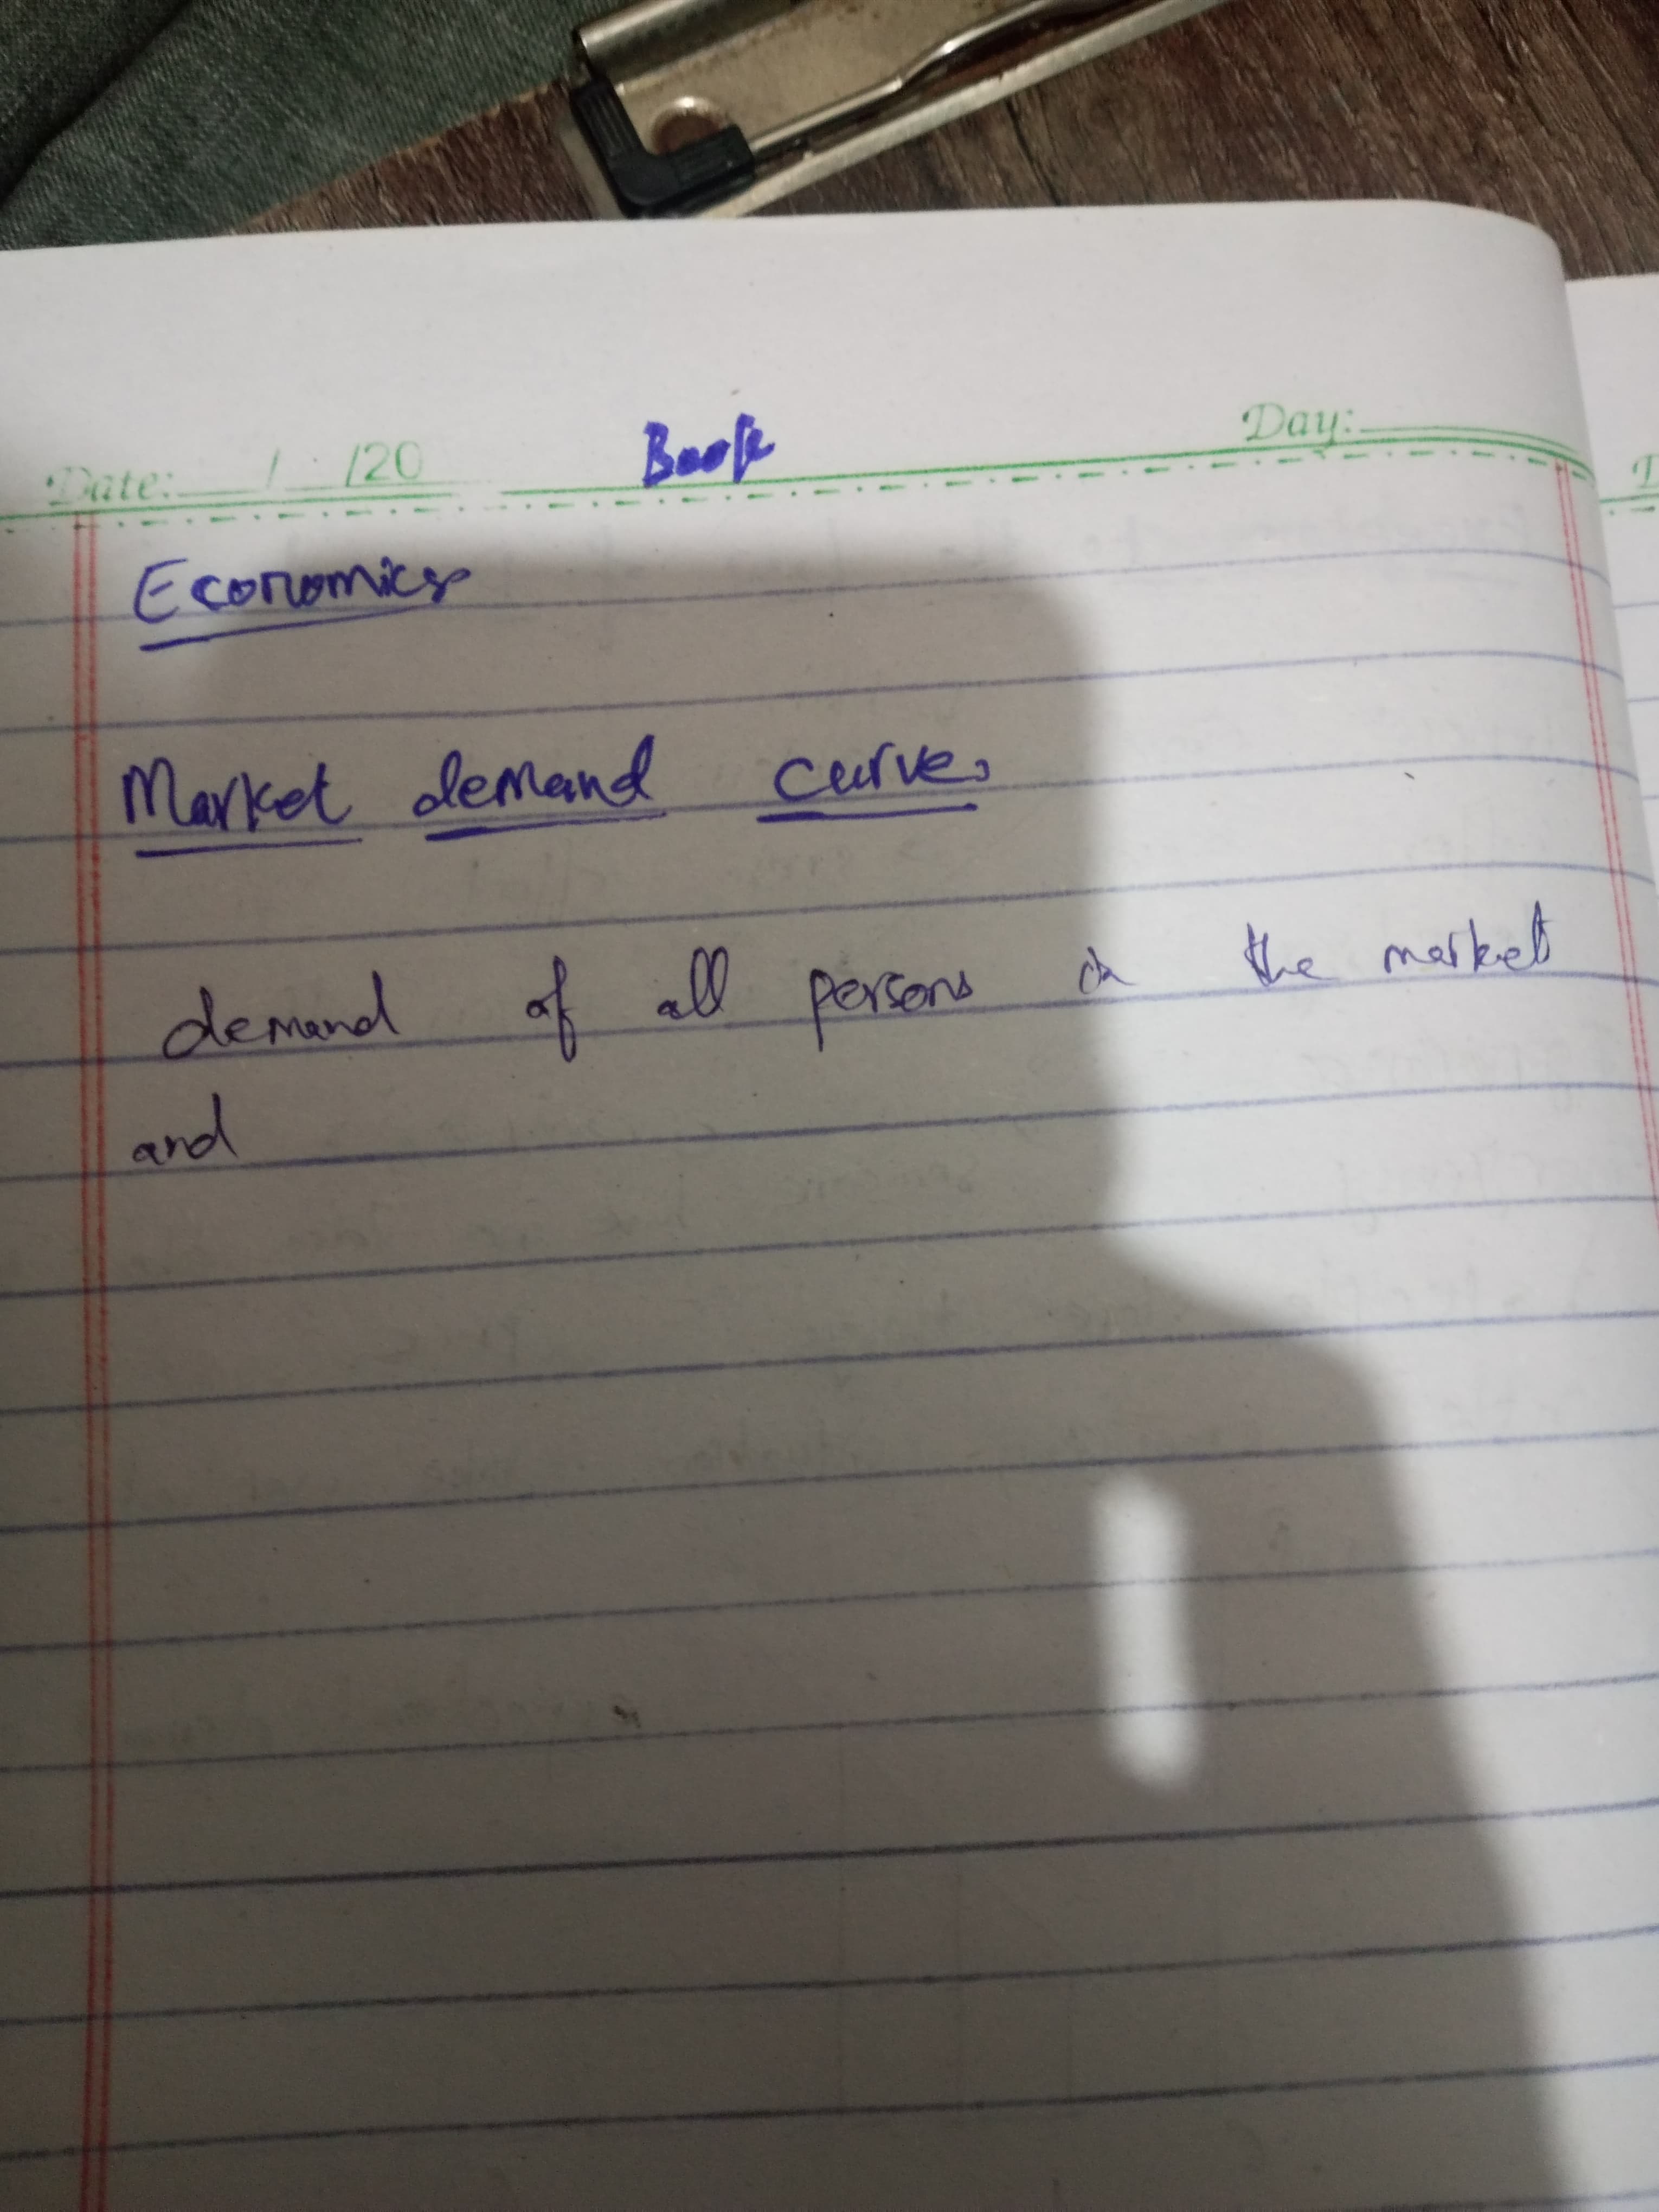 Date: / /20 Book Day:
Economics
Market demand curve.
demand of all persons in the market
and